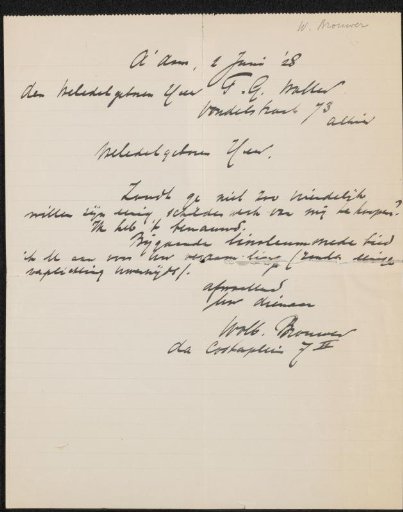 W. Brouwer
A'dam, 2 Juni '28
den weledelgeboren Heer F. G. Waller
Vondelstraat 73
alhier
Weledelgeboren Heer.
Zoudt ge niet zoo vriendelijk
willen zijn eenig schilderwerk van mij te koopen?
Ik heb 't benauwd.
Bijgaande linoleumsnede bied
ik U aan voor Uw verzameling (zonder eenige
verplichting Uwerzijds).
afwachtend
Uw dienaar
Wolb. Brouwer
da Costaplein 7 II